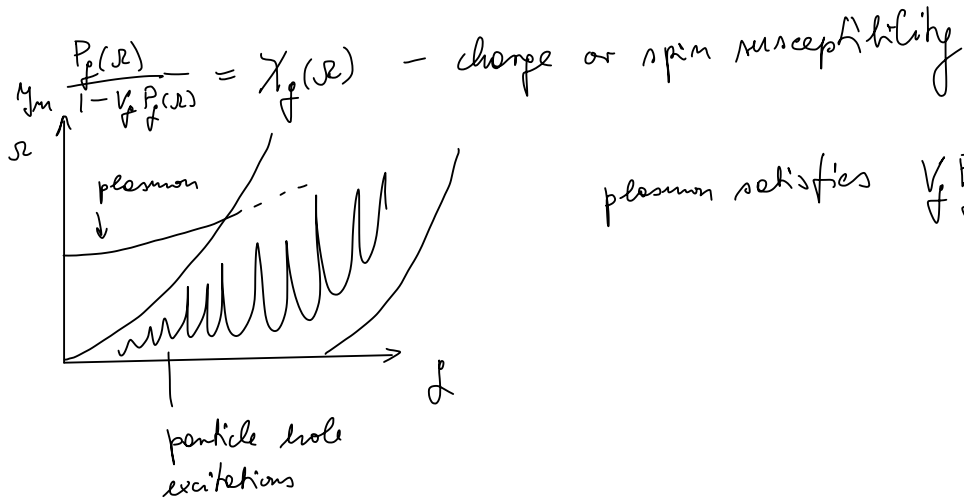 P_q(Ω) / 1 - V_q P_q(Ω) = χ_q(Ω) - charge or spin susceptibility
Im
Ω
plasmon
plasmon satisfies V_q
q
particle hole
excitations